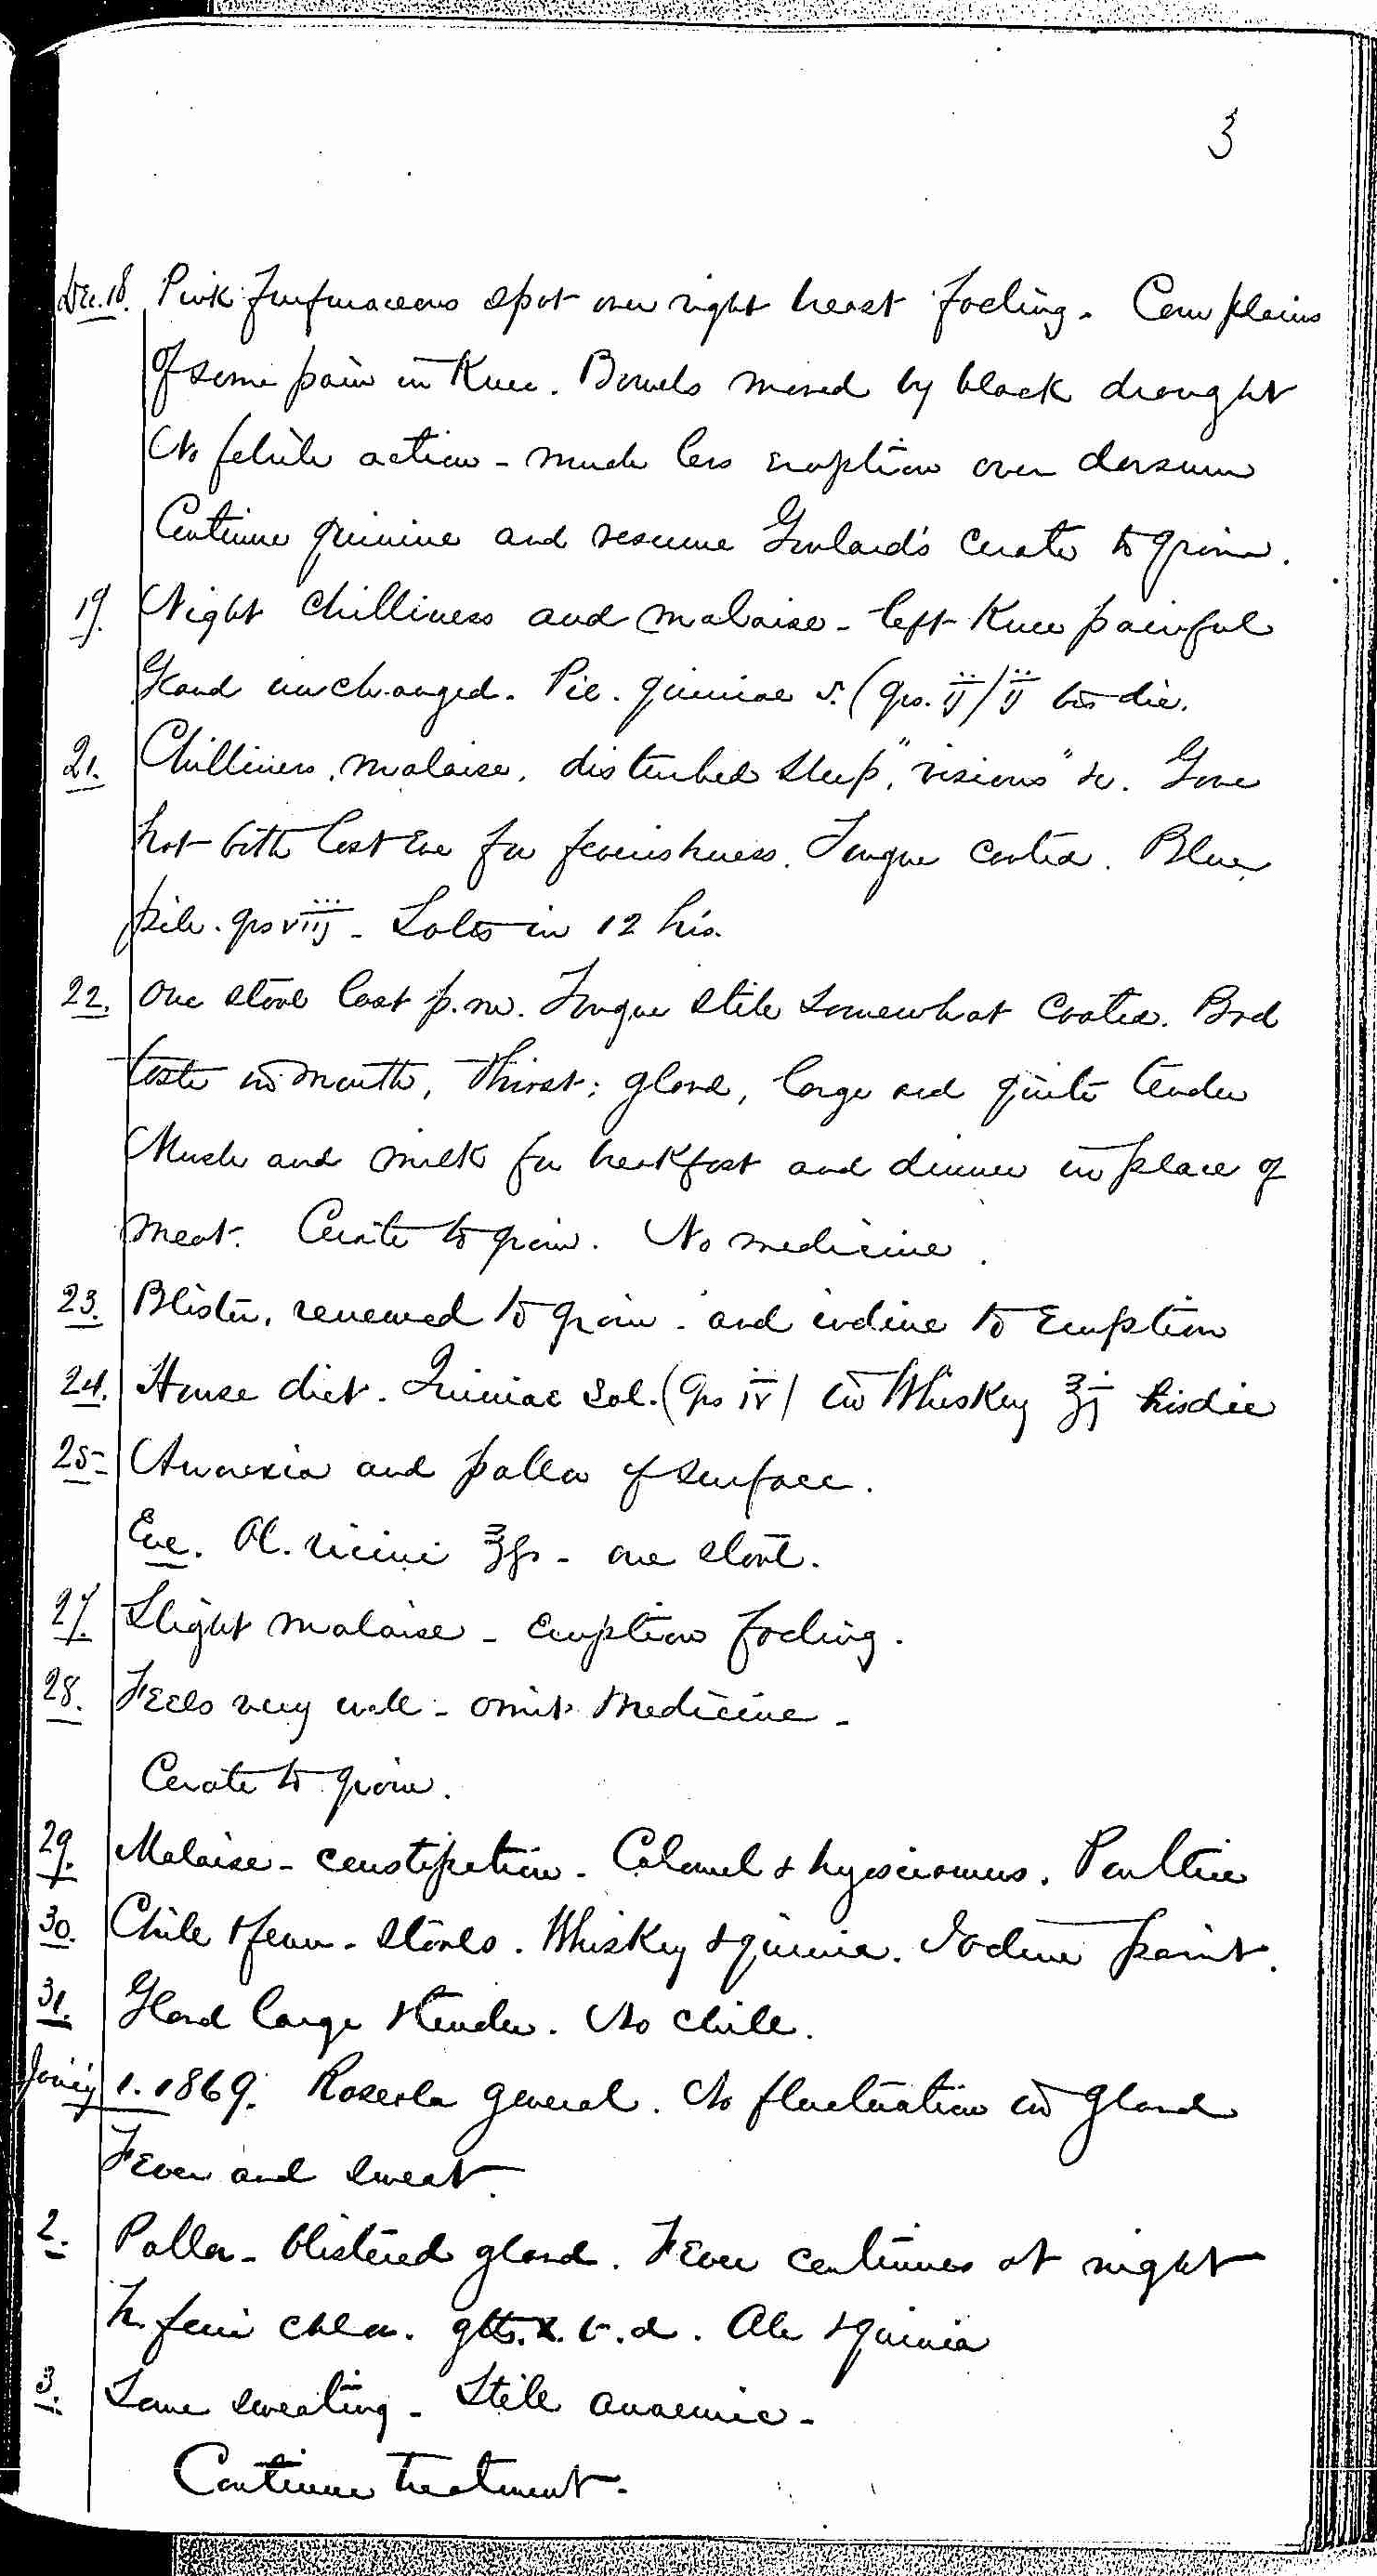 3
Dec. 18. Pink furfuraceous spot over right breast fading. Complains
of some pain in Knee. Bowels moved by black draught
No febrile action - much less eruption over dorsum
Continue quinine and resume Goulard's cerate to groin.
19. Night chilliness and malaise - left Knee painful
Gland unchanged. Pil. quiniae s. (grs. ij) ij bis die.
21. Chilliness, malaise, disturbed sleep, "visions" &c. Gave
hot bath last Eve for feverishness. Tongue coated. Blue
pill. grs viij - Salts in 12 hrs.
22. One stool last p.m. Tongue still somewhat coated. Bad
taste in mouth, thirst; gland, large and quite tender
Mush and milk for breakfast and dinner in place of
meat. Cerate to groin. No medicine.
23. Blister, renewed to groin - and iodine to Eruption
24. House diet. Quiniae Sol. (grs iv) in Whiskey ℥j bis die
25 - Anorexia and pallor of surface.
Eve. Ol. ricini ℥ss - one stool.
27. Slight malaise - Eruption fading.
28. Feels very well - omit Medicine -
Cerate to groin.
29. Malaise - constipation - Calomel & hyosciamus. Poultice
30. Chill & fever - Stools. Whiskey & quinia. Iodine paint.
31. Gland large & tender. No chill.
Jan'y 1. 1869. Roseola general. No fluctuation in gland
Fever and sweat.
2. Pallor - blistered gland. Fever continues at night
Tr. ferri chlor. gtts. x. t.d. Ale & quinia
3. Same sweating - Still anaemic -
Continue treatment.